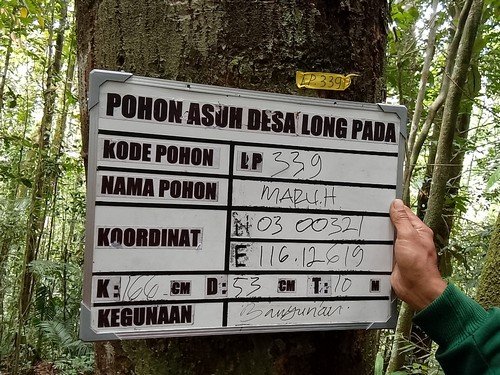 LP.339
POHON ASUH DESA LONG PADA
KODE POHON LP 339
NAMA POHON MARU.H
KOORDINAT N 03 00321
E 116.12619
K: 166 CM D: 53 CM T: 10 M
KEGUNAAN Bangunan